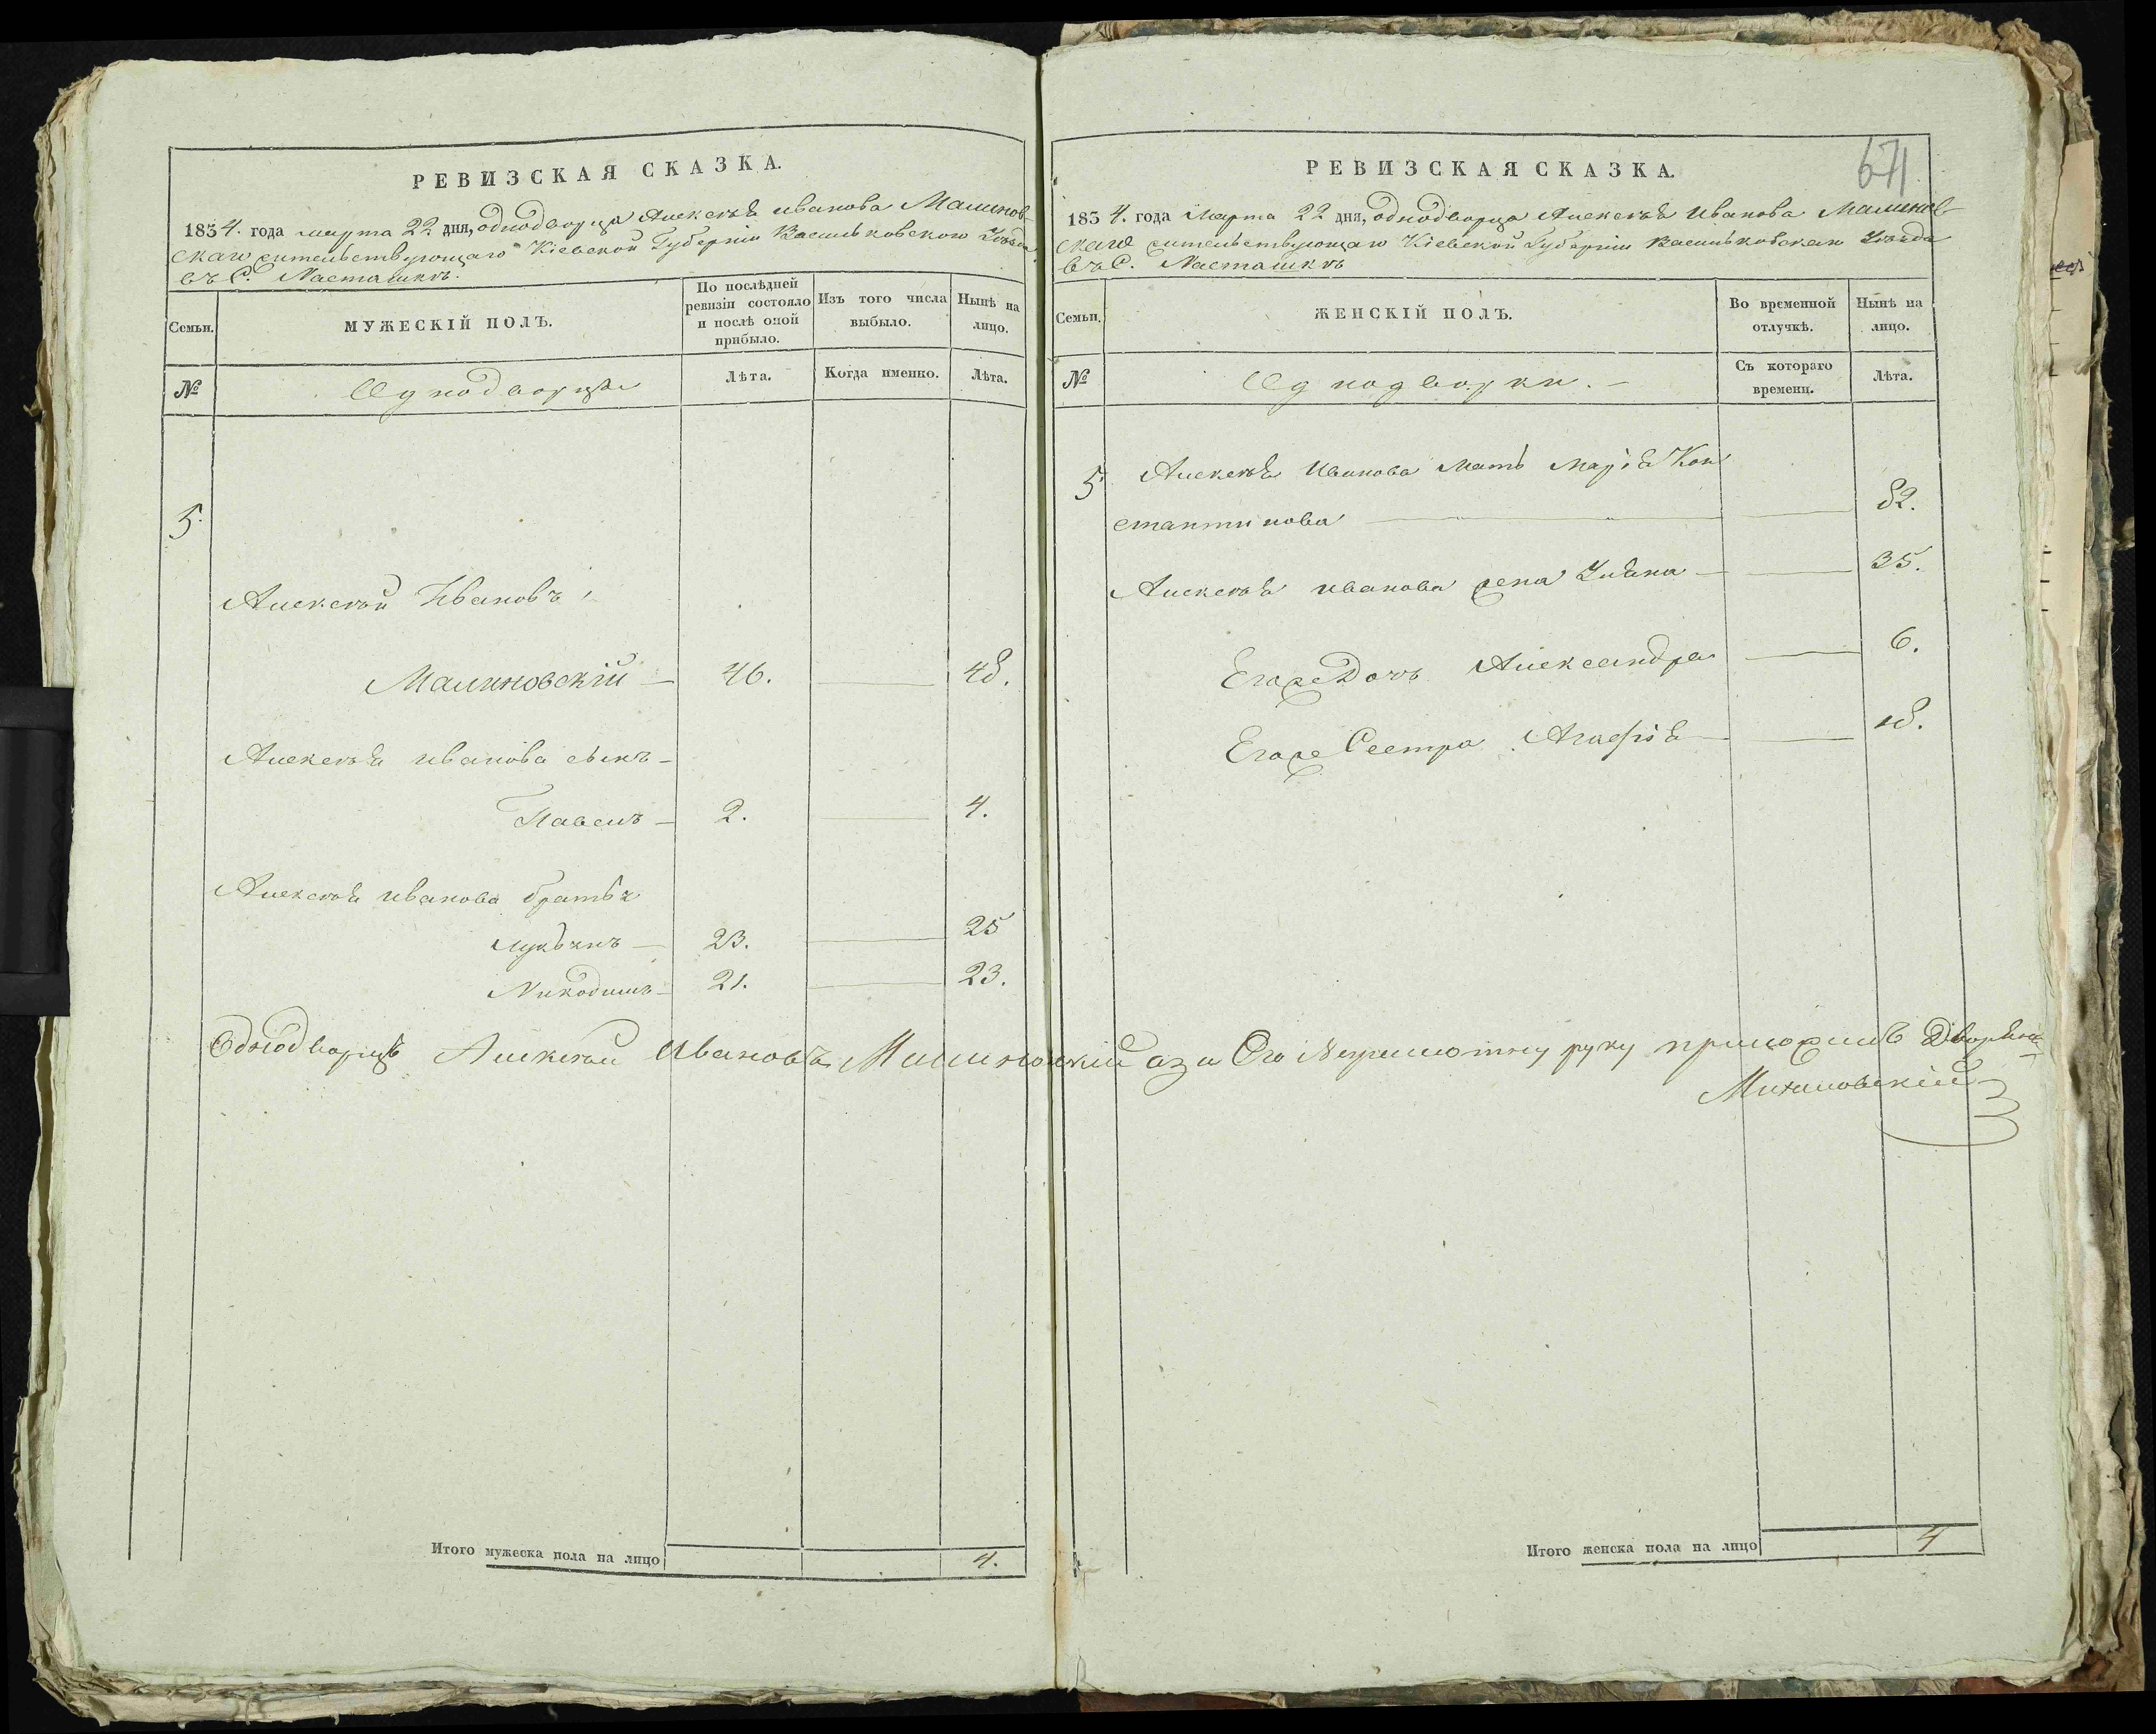 РЕВИЗСКАЯ СКАЗКА.
1834. года марта 22 дня, однодворца Алексѣя Иванова Малинов-
скаго жительствующаго Кіевской Губерніи Васильковскаго Уѣзда
въ С. Насташкѣ.
Семьи.
МУЖЕСКІЙ ПОЛЪ.
По послѣдней ревизіи состояло и послѣ оной прибыло.
Изъ того числа выбыло.
Нынѣ на лицо.
№
Однодворцы
Лѣта.
Когда именно.
Лѣта.
5.
Алексѣй Ивановъ
Малиновскій — 46. — 48.
Алексѣя Иванова сынъ —
Павелъ — 2. — 4.
Алексѣя Иванова братья
Лукьянъ — 23. — 25
Никодимъ — 21. — 23.
Итого мужеска пола на лицо 4.
РЕВИЗСКАЯ СКАЗКА.
671
1834. года Марта 22 дня, однодворца Алексѣя Иванова Малинов-
скаго жительствующаго Кіевской Губерніи Васильковскаго Уѣзда
въ С. Насташкѣ
Семьи.
ЖЕНСКІЙ ПОЛЪ.
Во временной отлучкѣ.
Нынѣ на лицо.
№
Однодворки. —
Съ котораго времени.
Лѣта.
5. Алексѣя Иванова Мать Марія Кон
стантинова — 82.
Алексѣя Иванова жена Уляна — 35.
Егоже Дочь Александра — 6.
Егоже Сестра Агафія — 18.
Однодворецъ Алексѣй Ивановъ Малиновскій а за Его Неграмотну руку приложилъ Дворянинъ
Итого женска пола на лицо 4